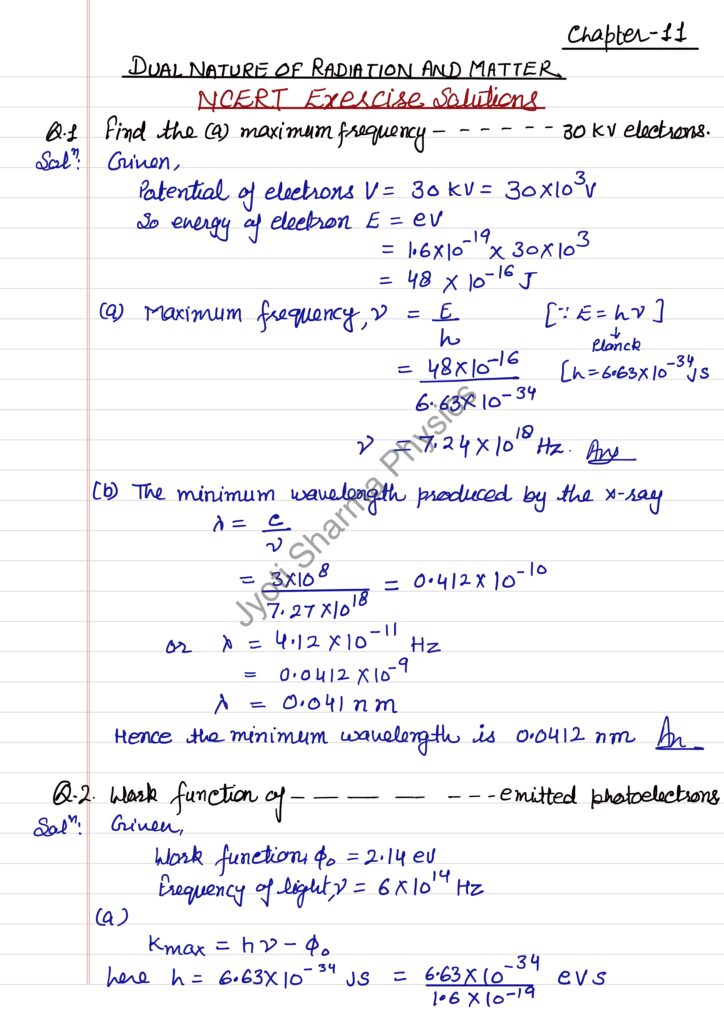 Chapter-11
DUAL NATURE OF RADIATION AND MATTER
NCERT Exercise Solutions
Q.1 Find the (a) maximum frequency - - - - - - 30 KV electrons.
Solⁿ: Given,
Potential of electrons V = 30 KV = 30×10³V
So energy of electron E = eV
= 1.6×10⁻¹⁹ × 30×10³
= 48 × 10⁻¹⁶ J
(a) Maximum frequency, ν = E/h [∵ E = hν]
↓
Planck
= 48×10⁻¹⁶ / 6.63×10⁻³⁴ [h=6.63×10⁻³⁴JS
ν = 7.24×10¹⁸ Hz. Ans
(b) The minimum wavelength produced by the x-ray
λ = c/ν
= 3×10⁸ / 7.27×10¹⁸ = 0.412×10⁻¹⁰
or λ = 4.12×10⁻¹¹ Hz
= 0.0412×10⁻⁹
λ = 0.041 nm
Hence the minimum wavelength is 0.0412 nm An
Q.2. Work function of - — — — - - - emitted photoelectrons
Solⁿ: Given,
Work function, ϕ₀ = 2.14 eV
Frequency of light, ν = 6×10¹⁴ Hz
(a)
Kmax = hν - ϕ₀
here h = 6.63×10⁻³⁴ JS = 6.63×10⁻³⁴ / 1.6×10⁻¹⁹ eVs
Jyoti Sharma Physics